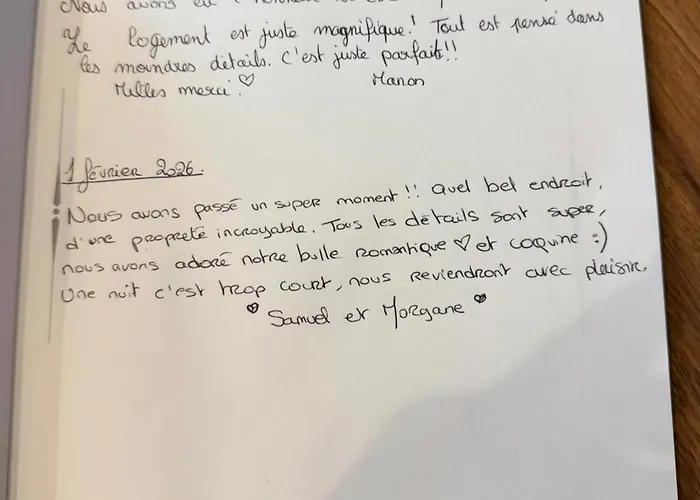 Nous avons eu l'
Le logement est juste magnifique! Tout est pensé dans
les moindres détails. C'est juste parfait!!
Milles merci! ♡ Manon
1 février 2026.
Nous avons passé un super moment!! Quel bel endroit,
d'une propreté incroyable. Tous les détails sont super,
nous avons adoré notre bulle romantique ♡ et coquine :)
Une nuit c'est trop court, nous reviendront avec plaisir.
♥ Samuel et Morgane ♥